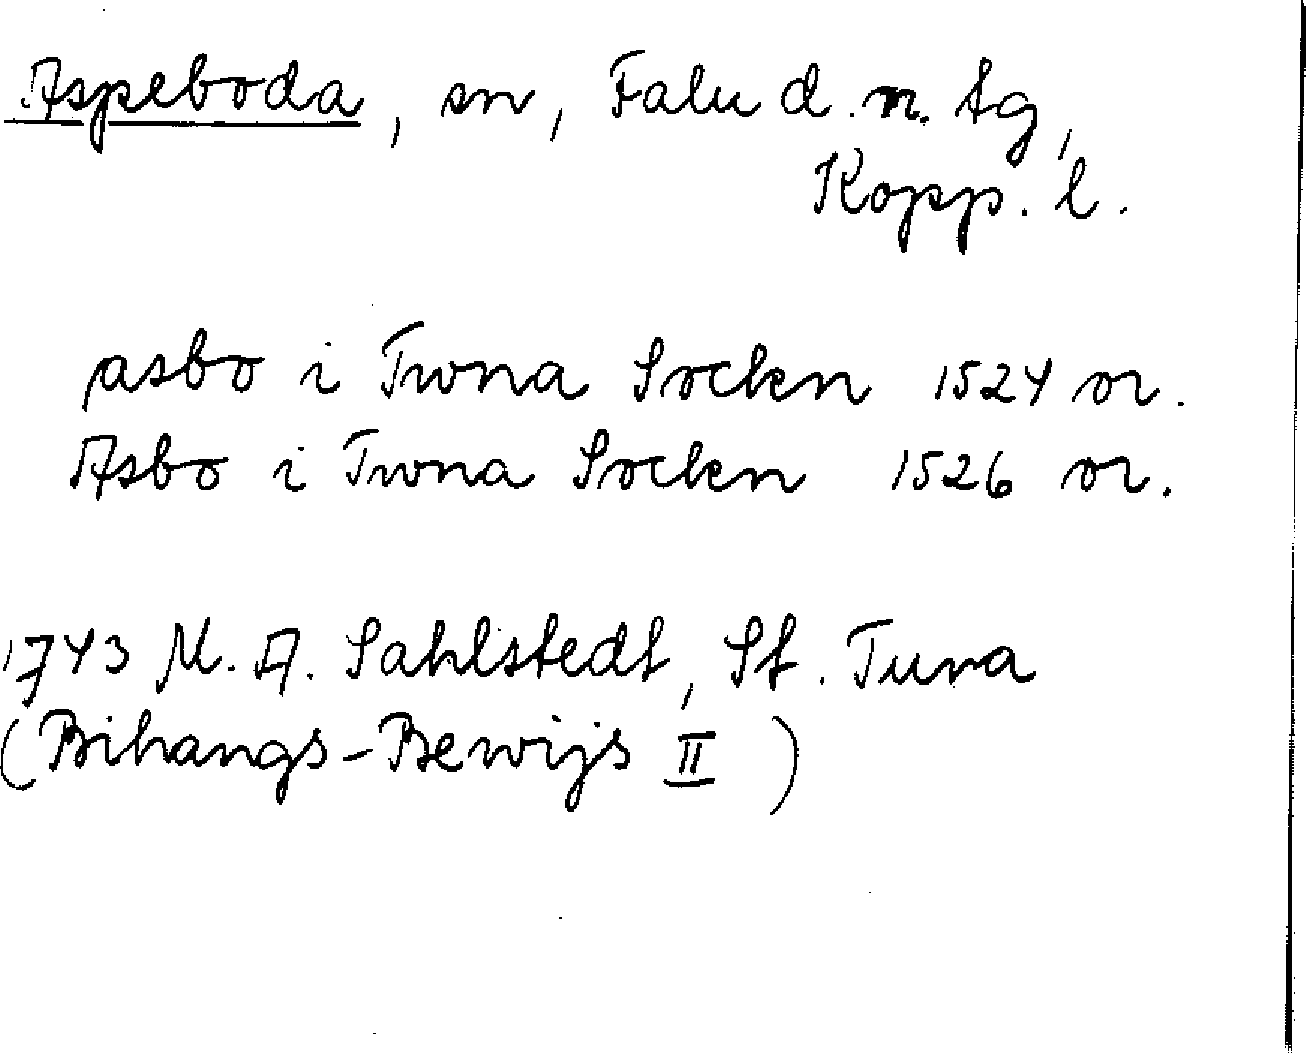 Aspeboda, sn, Falu d. n. tg,
Kopp. l.
asbo i Twna Socken 1524 or.
Asbo i Twna Socken 1526 or.
1743 M. A. Sahlstedt, St. Tuna
(Bihangs-Bewijs II)